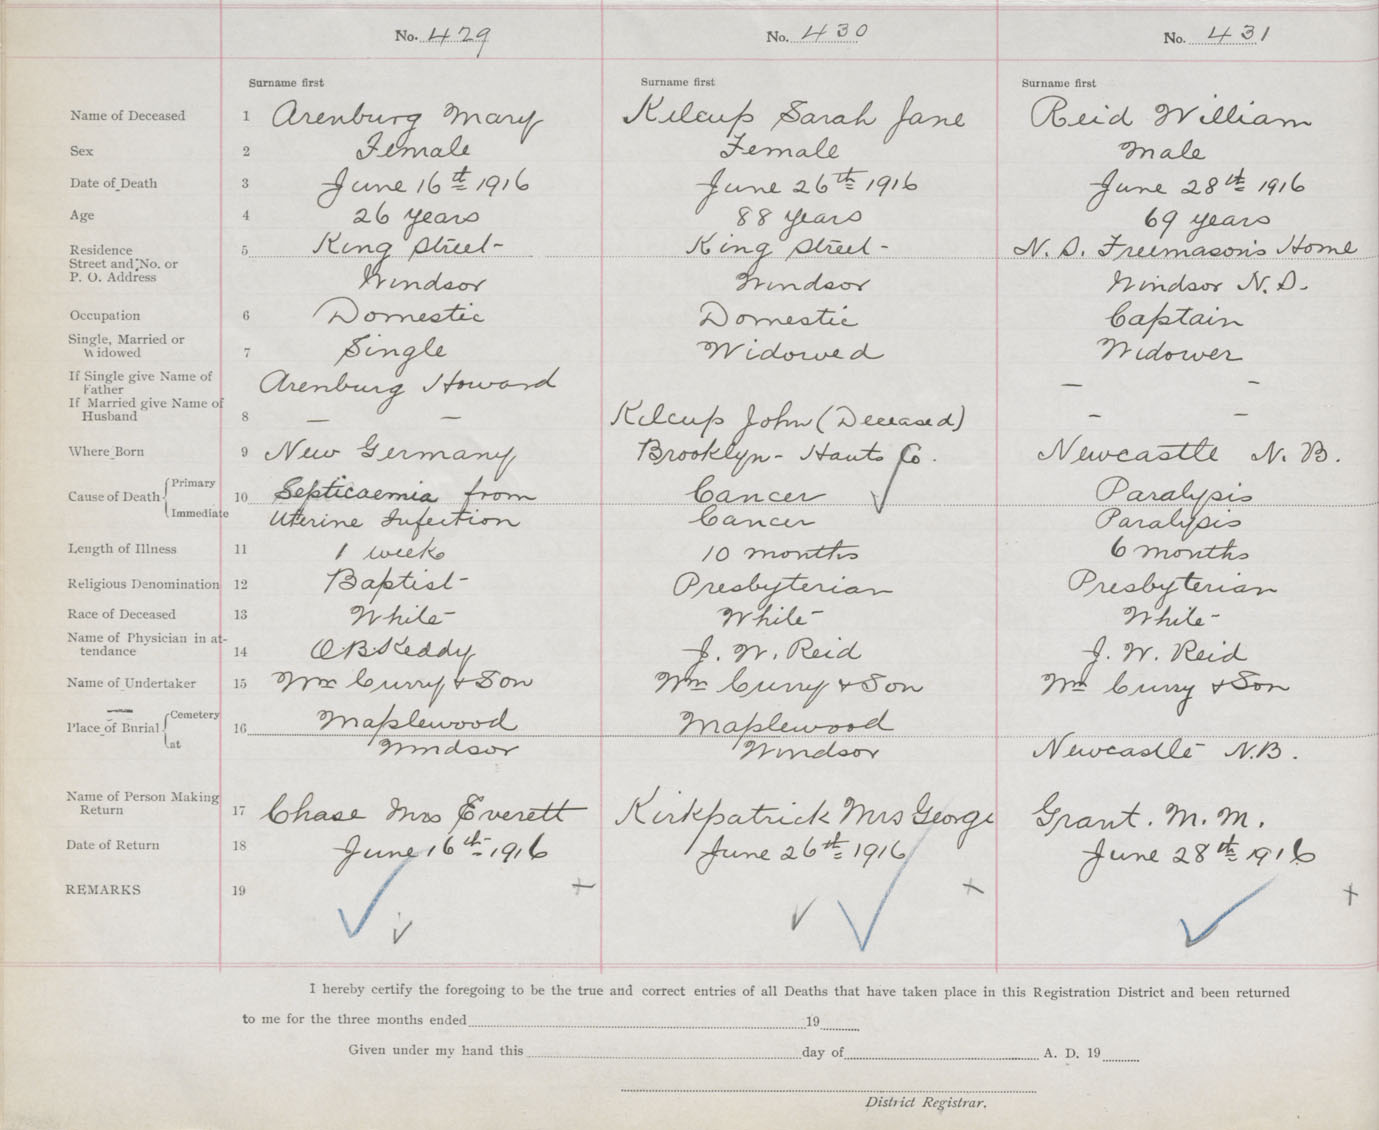 No. 429 No. 430 No. 431
Surname first Surname first Surname first
Name of Deceased 1 Arenburg Mary Kilcup Sarah Jane Reid William
Sex 2 Female Female Male
Date of Death 3 June 16th 1916 June 26th 1916 June 28th 1916
Age 4 26 years 88 years 69 years
Residence 5 King Street King Street N. S. Freemason's Home
Street and No. or
P. O. Address Windsor Windsor Windsor N. S.
Occupation 6 Domestic Domestic Captain
Single, Married or
Widowed 7 Single Widowed Widower
If Single give Name of
Father Arenburg Howard — -
If Married give Name of
Husband 8 — — Kilcup John (Deceased) - -
Where Born 9 New Germany Brooklyn - Hants Co. Newcastle N. B.
Cause of Death { Primary 10 Septicaemia from Cancer Paralysis
Immediate Uterine Infection Cancer Paralysis
Length of Illness 11 1 week 10 months 6 months
Religious Denomination 12 Baptist Presbyterian Presbyterian
Race of Deceased 13 White White White
Name of Physician in at-
tendance 14 O B Keddy J. W. Reid J. W. Reid
Name of Undertaker 15 Wm Curry & Son Wm Curry & Son Wm Curry & Son
Place of Burial { Cemetery 16 Maplewood Maplewood
at Windsor Windsor Newcastle N.B.
Name of Person Making
Return 17 Chase Mrs Everett Kirkpatrick Mrs George Grant. M. M.
Date of Return 18 June 16th 1916 June 26th 1916 June 28th 1916
REMARKS 19
I hereby certify the foregoing to be the true and correct entries of all Deaths that have taken place in this Registration District and been returned
to me for the three months ended 19
Given under my hand this day of A. D. 19
District Registrar.